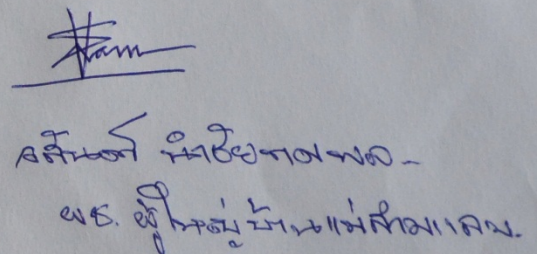 นำชัยทศพล
ผช. ผู้ใหญ่บ้านแม่สามแลบ